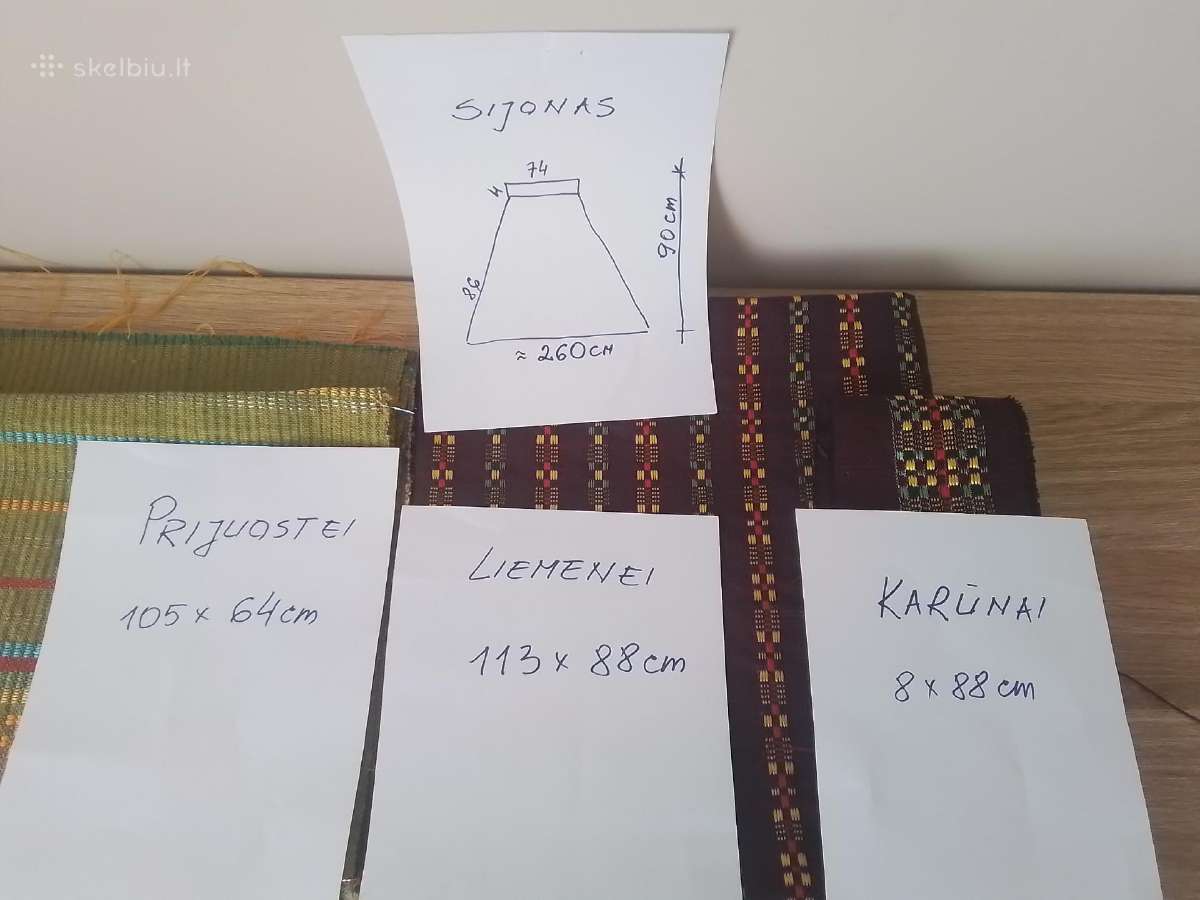 skelbiu.lt
SIJONAS
74
4
90cm
86
≈ 260cm
PRIJUOSTEI
105 x 64cm
LIEMENEI
113 x 88cm
KARŪNAI
8 x 88cm